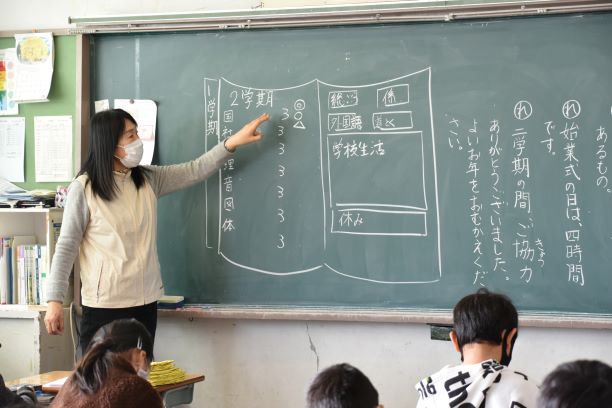 あるもの
れ 始業式の日は、四時間
です。
れ 二学期の間、ご協力
きょう
ありがとうございました。
よいお年をおむかえくだ
さい。
1学期
2学期
◎
○
△
国 3
社 3
3
理 3
音 3
図 3
体 3
総
係
外国語
道と
学校生活
休み